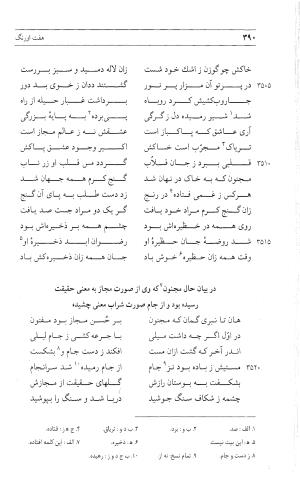 ۳۹۰ هفت اورنگ
خاکش چو گوزن ز اشک خود شست زان لاله دمید و سبز بررست
۳۵۰۵ در پرتو آن مزار پر نور گشتند ددان ز خوی بد دور
جاروب‌کشیش کرد روباه برداشت غبار حیله از راه
شد شیر رمیده دل ز گرگی پی برده به پایهٔ بزرگی
آری عاشق که پاکباز است عشقش نه ز عالم مجاز است
تریاک مجرّب است خاکش اکسیر وجود عشق پاکش
۳۵۱۰ قلبی ببرد ز جان قلّاب گردد مس قلب او زر ناب
مجنون که به خاک در نهان شد گنج کرم همه جهان شد
هرکس ز غمی فتاده در رنج زد دست طلب به پای آن گنج
زان گنج کرم مراد خود یافت گر یک دو مراد جست صد یافت
روی همه در حظیره‌اش بود چشم همه بر ذخیره‌اش بود
۳۵۱۵ شد روضهٔ جان حظیرهٔ او رضوان ابد ذخیرهٔ او
وقت همه زان حظیره خوش باد جان همه زان ذخیره‌کش باد
در بیان حال مجنون که وی از صورت مجاز به معنی حقیقت
رسیده بود و از جام صورت شراب معنی چشیده
هان تا نبری گمان که مجنون بر حُسن مجاز بود مفتون
در اوّل اگر چه داشت میلی با جرعه کشی ز جام لیلی
اندر آخر که گشت ازان مست افکند ز دست جام و بشکست
۳۵۲۰ مستیش ز باده بود نز جام از جام رمیده شد سرانجام
بشکفت به بوستان رازش گلهای حقیقت از مجازش
چشمه ز شکاف سنگ جوشید دریا شد و سنگ را بپوشید
۱. الف : صد. ۲. ب و : برد. ۳. ب د و : تریاق. ۴. ج ه : فتاده.
۵. ه : این بیت نیست. ۶. ه : ذخیره. ۷. الف : این کلمه افتاده.
۸. ز دست و جام. ۹. تمام نسخ : نه از ۱۰. ب ج د و ز : رهیده.